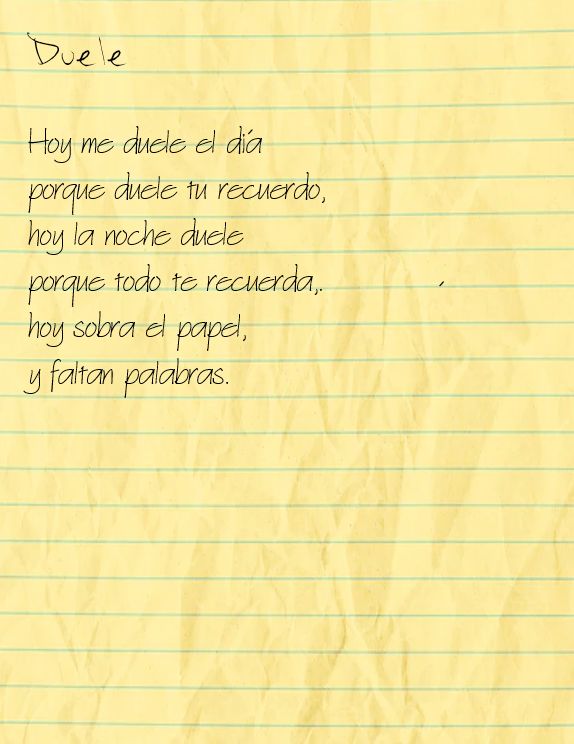 Duele
Hoy me duele el día
porque duele tu recuerdo,
hoy la noche duele
porque todo te recuerda,.
hoy sobra el papel,
y faltan palabras.